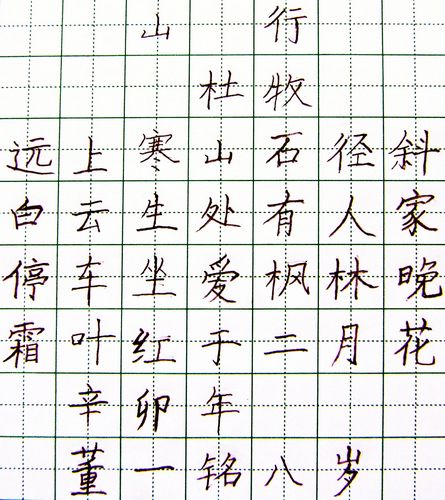 山行
杜牧
远上寒山石径斜
白云生处有人家
停车坐爱枫林晚
霜叶红于二月花
辛卯年
董一铭八岁